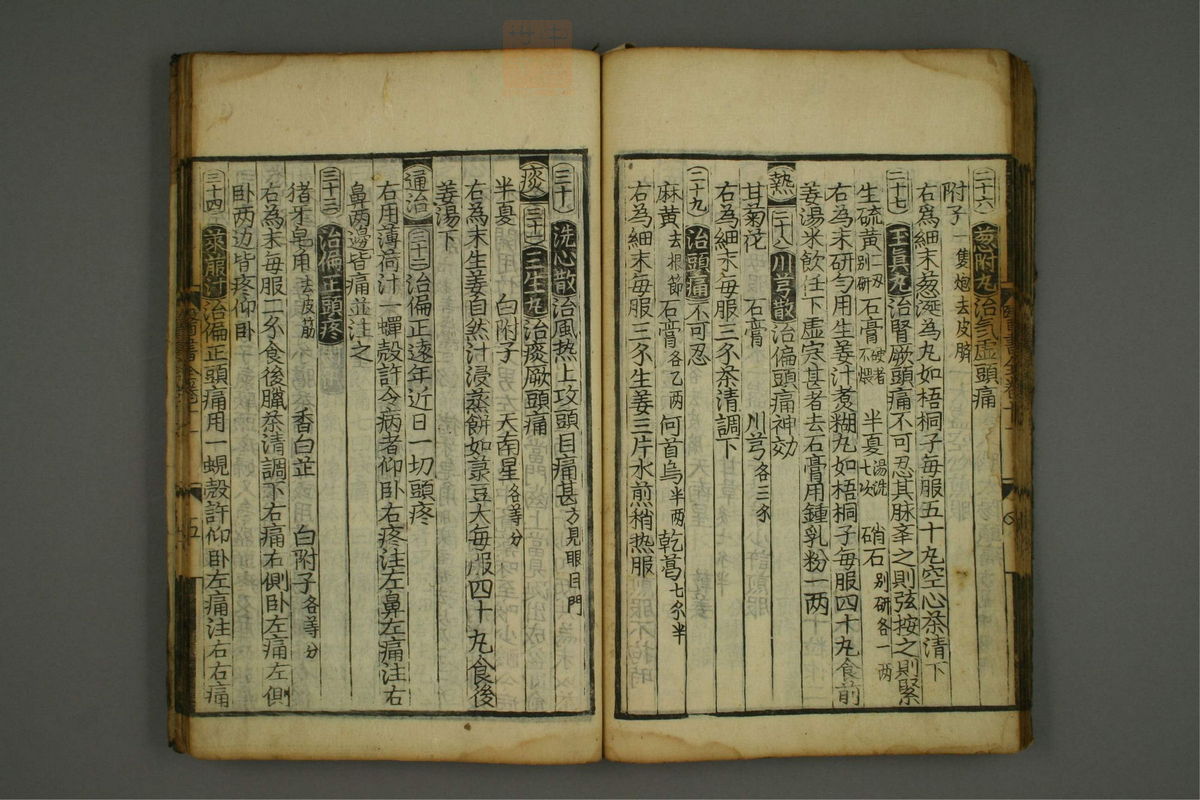 二十六 葱附丸 治气虚頭痛
附子一隻炮去皮臍
右為細末葱涎為丸如梧桐子每服五十丸空心茶清下
二十七 玉眞丸 治腎厥頭痛不可忍其脉举之則弦按之則緊
生硫黄二刄别研 石膏硬者不煨 半夏湯洗七次 硝石别研各一两
右為末研匀用生姜汁煑糊丸如梧桐子每服四十丸食前
姜湯米飲任下虚寒甚者去石膏用鍾乳粉一两
熱 二十八 川芎散 治偏頭痛神効
甘菊花 石膏 川芎各三分
右為細末每服三分茶清調下
二十九 治頭痛不可忍
麻黄去根節 石膏各乙两 何首烏半两 乾葛七分半
右為細末每服三分生姜三片水煎稍热服
三十 洗心散 治風热上攻頭目痛甚方見眼目門
痰 三十一 三生丸 治痰厥頭痛
半夏 白附子 天南星各等分
右為末生姜自然汁浸蒸餅如菉豆大每服四十丸食後
姜湯下
通治 三十二 治偏正遠年近日一切頭疼
右用薄荷汁一蟬殼許令病者仰卧右疼注左鼻左痛注右
鼻两邊皆痛並注之
三十三 治偏正頭疼
猪牙皂角去皮筋 香白芷 白附子各等分
右為末每服一分食後臘茶清調下右痛右側卧左痛左側
卧两边皆疼仰卧
三十四 煎汁 治偏正頭痛用一蜆殼許仰卧左痛注右右痛
五